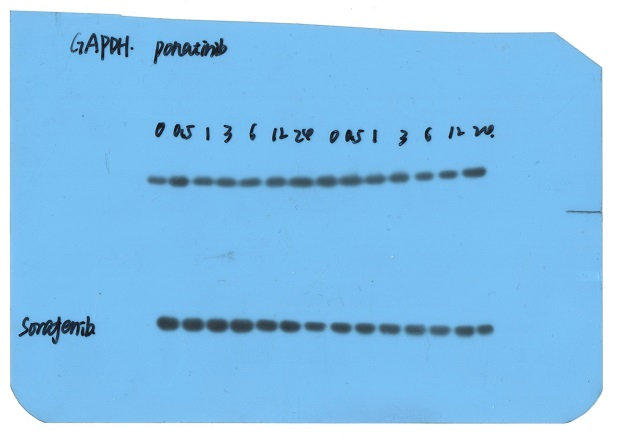 GAPDH. ponatinib
0 0.5 1 3 6 12 24 0 0.5 1 3 6 12 24.
Sorafenib